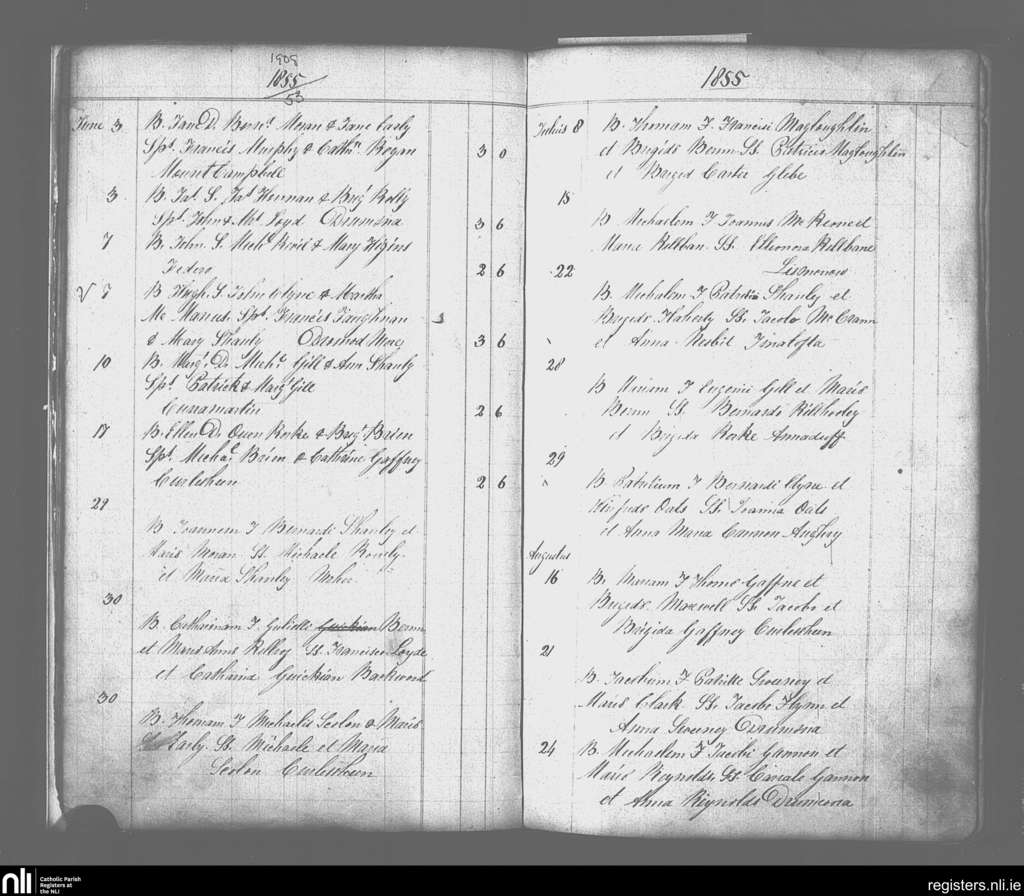 1908
1855
53
June 3 B. Jane D. Bernd. Moran & Jane Early
Sps. Francis Murphy & Cathn. Regan 3 0
Mount Campbell
3. B. Jas. S. Jas. Heenan & Brigt Reilly
Sps. John & Mt Loyd Drumsna 3 6
7 B. John. S. Michl & Mary Higins
2 6
V 7 B. Hugh. S. John Clyne & Martha
Mc Manus. Sps. Francis Vaughnan
& Mary Shanly Drumod More 3 6
10 B. Margt. D. Michl. Gill & Ann Shanly
Sps. Patrick & Margt Gill
Curramartin 2 6
17 B. Ellen D. Owen Rorke & Brigt Brien
Sps. Michal Brien & Cathrine Gaffney
Curleshun 2 6
29
B Joannem F Bernardi Shanley et
Maria Moran. SS. Michaele
et Maria Shanley
30
B. Catharinam F. Gulielli Guickian Beirn
et Maria Anna Kelley SS. Francisco Loyde
et Catharina Guickian Backwood
30
B. Thomam F Michaelis Scolon & Maria
Early. SS. Michaele et Maria
Scolon Curleshun
1855
Julius 8 B. Thomam F. Francisi Magloughlin
et Brigida Beirn SS. Patricio Magloughlin
et Briged Carter Glebe
15
B. Michaelem F Joannis Mc Keone et
Maria Killban. SS. Elleonora Killbane
22 Lismoriow
B. Michalem F Patritii Shanley et
Brigida Flaherty SS. Jacobo McCrann
et Anna Nesbit
28
B Miriam F Eugenii Gill et Maria
Beirn SS. Bernardo Killkooley
et Brigida Rorke Annaduff
29
B Patritium F Bernardi Clyne et
Oats SS. Joanna Oats
et Anna Maria Cannon Aughry
Augustus
16 B. Mariam F Thoma Gaffne et
Brigida. Maxwell SS. Jacobo et
Brigida Gaffney Curleshun
21
B. Jacobum F Patritte Sweeney et
Maria Clark. SS. Jacobo Flynn et
Anna Sweeney Drumsna
24 B. Michaelem F Jacobi Gannon et
Maria Reynolds, SS. Gannon
et Anna Reynolds Drumsna
nli Catholic Parish
Registers at
the NLI
registers.nli.ie